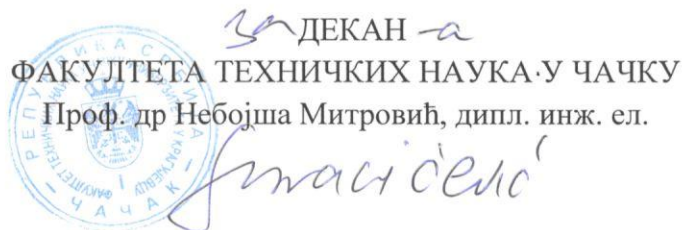 за ДЕКАН -а
ФАКУЛТЕТА ТЕХНИЧКИХ НАУКА У ЧАЧКУ
Проф. др Небојша Митровић, дипл. инж. ел.